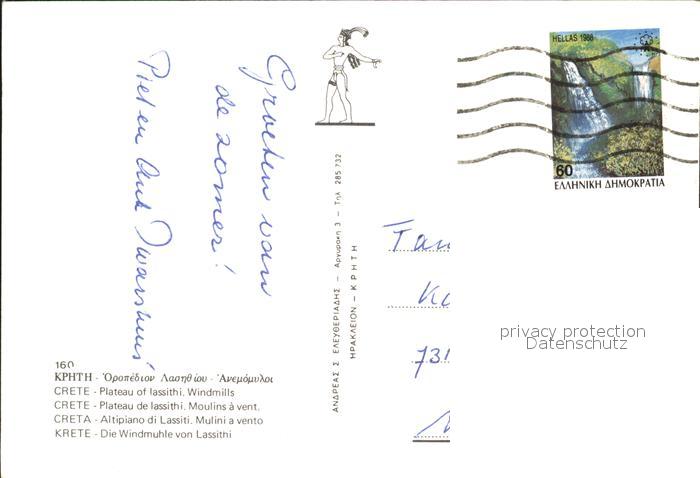 Groeten van
de zomer!
Piet en
HELLAS 1988
60
ΕΛΛΗΝΙΚΗ ΔΗΜΟΚΡΑΤΙΑ
ΑΝΔΡΕΑΣ Σ. ΕΛΕΥΘΕΡΙΑΔΗΣ — Αργυρακη 3 — Τηλ. 285 732
ΗΡΑΚΛΕΙΟΝ — ΚΡΗΤΗ
privacy protection
Datenschutz
160
ΚΡΗΤΗ - Ὀροπέδιον Λασηθίου - Ἀνεμόμυλοι
CRETE - Plateau of lassithi. Windmills
CRETE - Plateau de lassithi. Moulins à vent.
CRETA - Altipiano di Lassiti. Mulini a vento
KRETE - Die Windmuhle von Lassithi